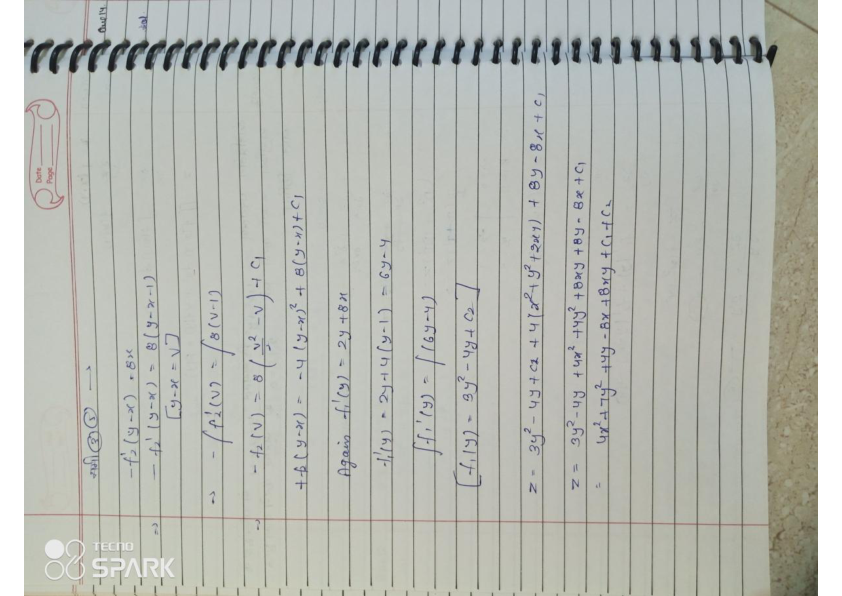 Date
Page
② ③ →
-f₂'(y-x) = 8x
⇒ -f₂'(y-x) = 8(y-x-1)
[y-x = v]
⇒ -∫f₂'(v) = ∫8(v-1)
⇒ -f₂(v) = 8(v²/2 - v) + C₁
+f₂(y-x) = -4(y-x)² + 8(y-x) + C₁
Again f₁'(y) = 2y+8x
f₁'(y) = 2y+4(y-1) = 6y-4
∫f₁'(y) = ∫(6y-4)
[f₁(y) = 3y² - 4y + C₂]
z = 3y² - 4y + C₂ + 4(x²+y²+2xy) + 8y - 8x + C₁
z = 3y² - 4y + 4x² + 4y² + 8xy + 8y - 8x + C₁
= 4x² + 7y² + 4y - 8x + 8xy + C₁ + C₂
TECNO
SPARK